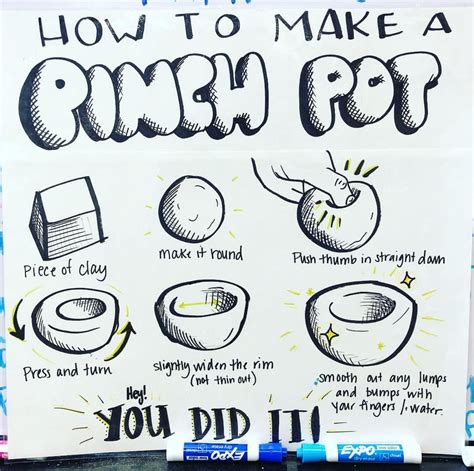 HOW TO MAKE A
PINCH POT
Piece of clay
make it round
Push thumb in straight down
Press and turn
slightly widen the rim
(not thin out)
smooth out any lumps
and bumps with
your fingers / water.
Hey!
YOU DID IT!
EXPO
EXPO